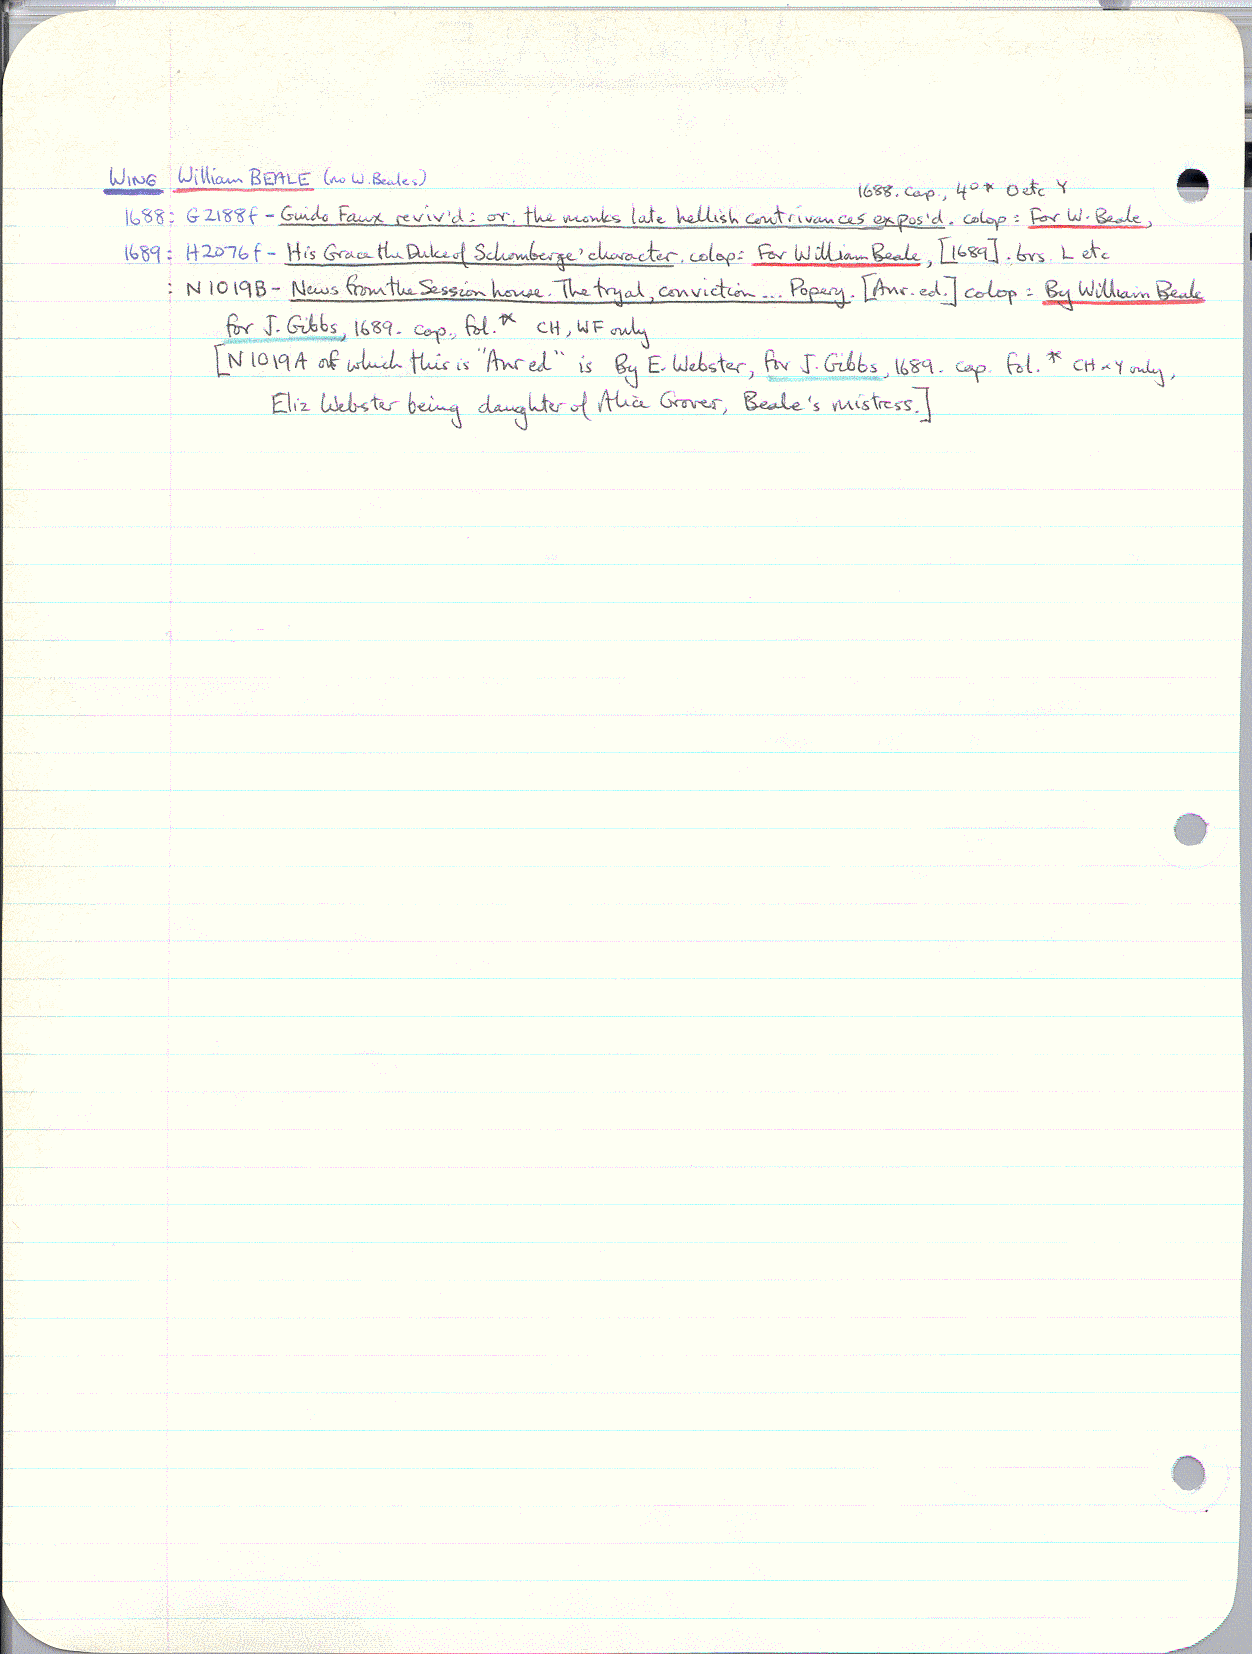 WING William BEALE (no W. Beales)
1688. cap., 4°* O etc Y
1688: G2188f - Guido Faux reviv'd: or, the monks late hellish contrivances expos'd. colop: For W. Beale,
1689: H2076f - His Grace the Duke of Schomberge' character. colop: For William Beale, [1689]. brs. L etc
: N1019B - News from the Session house. The tryal, conviction ... Popery. [Anr. ed.] colop: By William Beale
for J. Gibbs, 1689. cap., fol.* CH, WF only
[N1019A of which this is "Anr ed" is By E. Webster, for J. Gibbs, 1689. cap. fol.* CH Y only,
Eliz Webster being daughter of Alice Grover, Beale's mistress.]